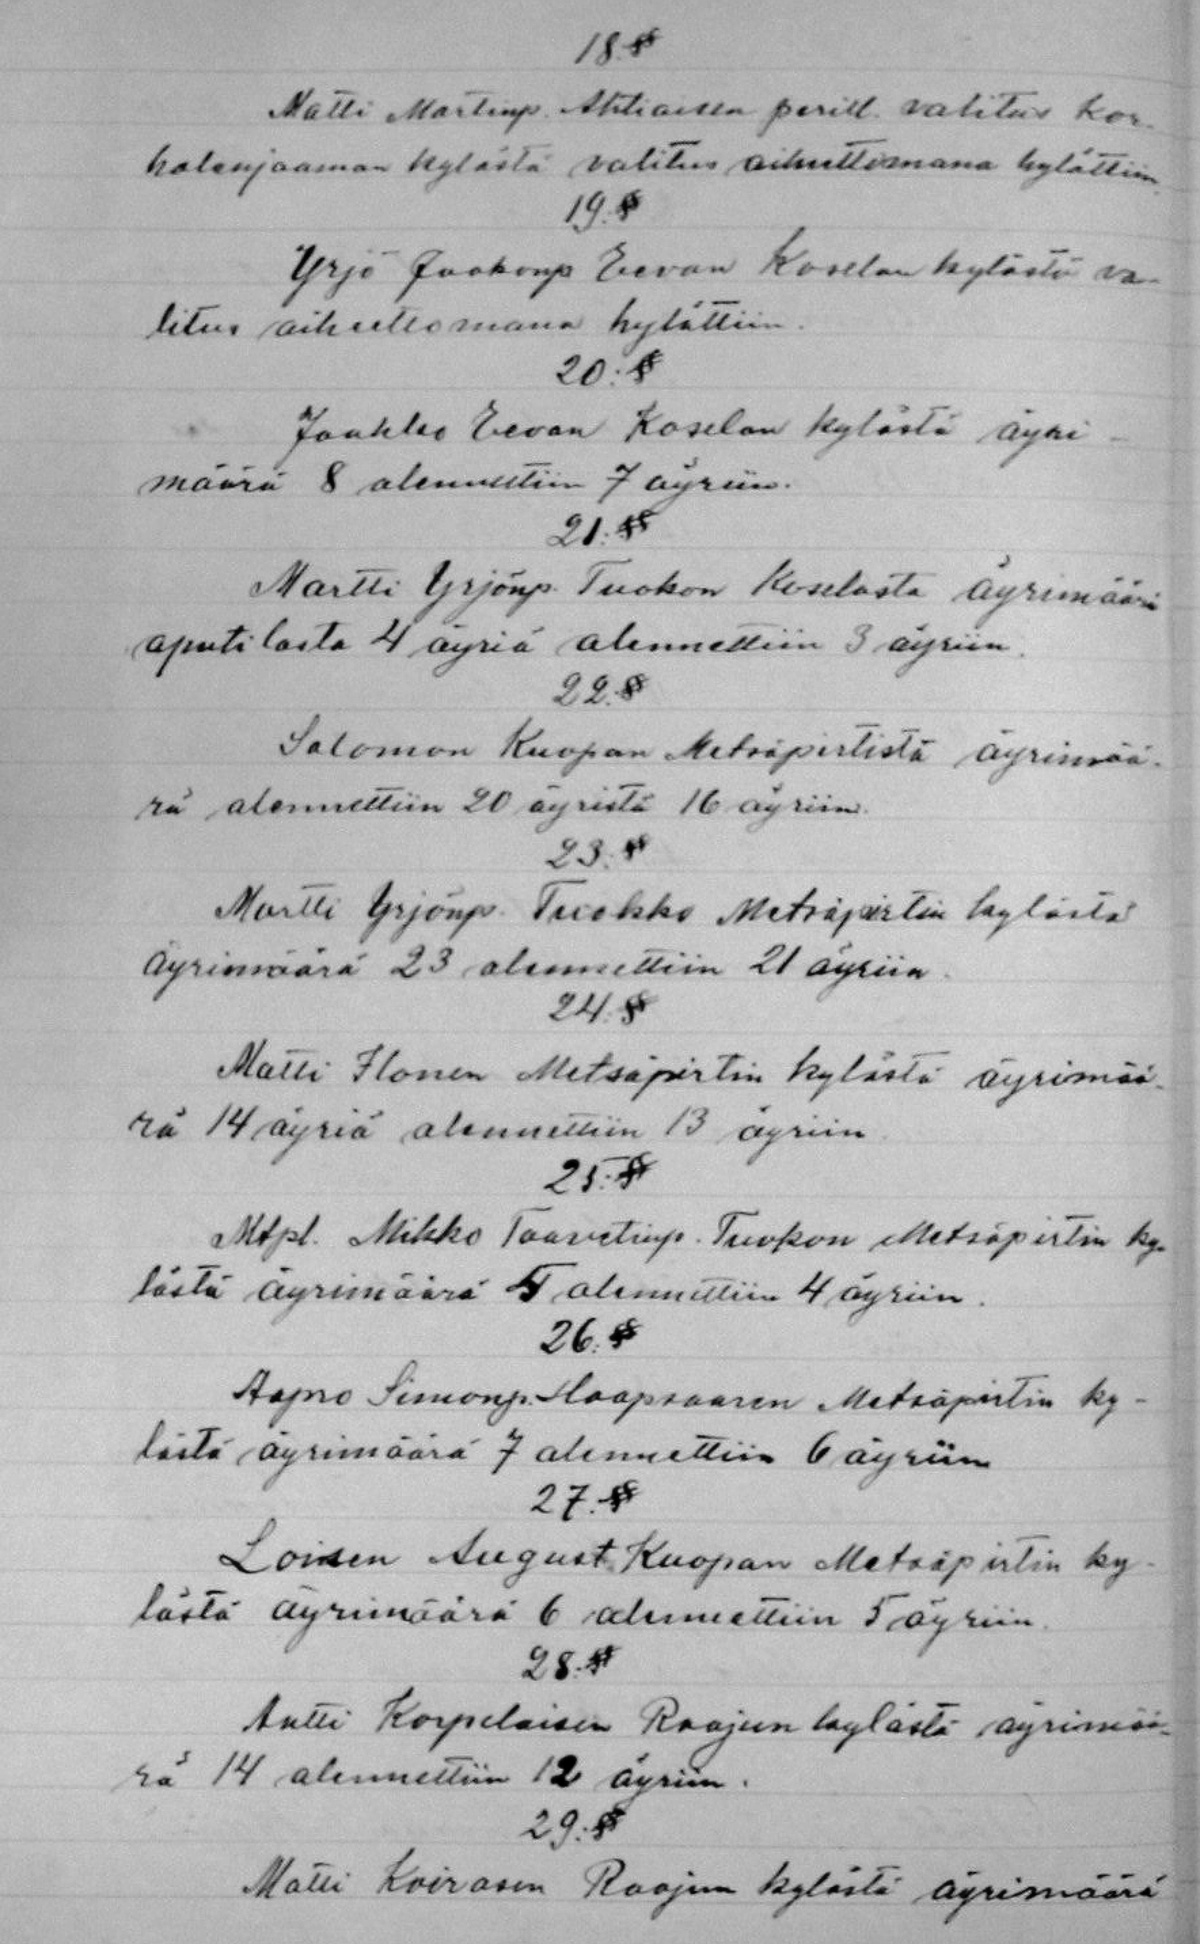 18 §
Matti Martinp. Ahtiaisen perill. valitus Kor-
holanjaaman kylästä valitus aiheettomana hylättiin.
19. §
Yrjö Jaakonp Eevan Koselan kylästä va-
litus aiheettomana hylättiin.
20: §
Jaakko Eevan Koselan kylästä äyri-
määrä 8 alennettiin 7 äyriin.
21: §
Martti Yrjönp. Tuokon Koselasta äyrimäärä
aputilasta 4 äyriä alennettiin 3 äyriin.
22. §
Salomon Kuopan Metsäpirtistä äyrimää-
rä alennettiin 20 äyristä 16 äyriin.
23: §
Martti Yrjönp. Tuokko Metsäpirtin kylästä
äyrimäärä 23 alennettiin 21 äyriin.
24. §
Matti Ilonen Metsäpirtin kylästä äyrimää-
rä 14 äyriä alennettiin 13 äyriin
25: §
Mtpl. Mikko Taavetinp. Tuokon Metsäpirtin ky-
lästä äyrimäärä 5 alennettiin 4 äyriin.
26: §
Aapro Simonp. Haapsaaren Metsäpirtin ky-
lästä äyrimäärä 7 alennettiin 6 äyriin
27. §
Loisen August Kuopan Metsäpirtin ky-
lästä äyrimäärä 6 alennettiin 5 äyriin.
28. §
Antti Korpelaisen Raajun kylästä äyrimää-
rä 14 alennettiin 12 äyriin.
29: §
Matti Koirasen Raajun kylästä äyrimäärä